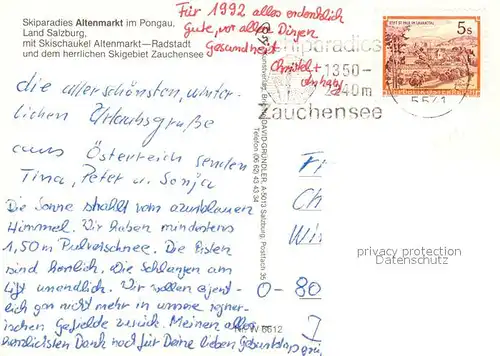 Skiparadies Altenmarkt im Pongau,
Land Salzburg,
mit Skischaukel Altenmarkt—Radstadt
und dem herrlichen Skigebiet Zauchensee
Für 1992 alles erdenklich
Gute, vor allen Dingen
Gesundheit
Christel +
5 S
Skiparadies
1350-
Zauchensee
5541
die allerschönsten, winter-
lichen Urlaubsgrüße
aus Österreich senden
Tina, Peter u. Sonja
Die Sonne strahlt vom azurblauen
Himmel. Wir haben mindestens
1,50m Pulverschnee. Die Pisten
sind herrlich. Die Schlangen am
Lift unendlich. Wir wollen eigent-
lich gar nicht mehr in unsere
Gefielde zurück. Meinen aller
herzlichsten Dank noch für Deine lieben Geburtstagsgrü
DAVID-GRÜNDLER, A-5013 Salzburg, Postfach 35
Telefon (06 62) 43 43 34
Nr. W 8612
Fr
Ch
Wi
0-80
privacy protection
Datenschutz